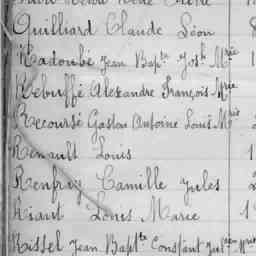 Quilliard Claude Léon
Radoubé Jean Bapte Josh Mrie
Rebuffé Alexandre François Mrie
Recoursé Gaston Antoine Louis Mrie
Renault Louis 1
Renfroy Camille Jules 2
Riant Louis Marie 1
Rissel Jean Bapte Constant